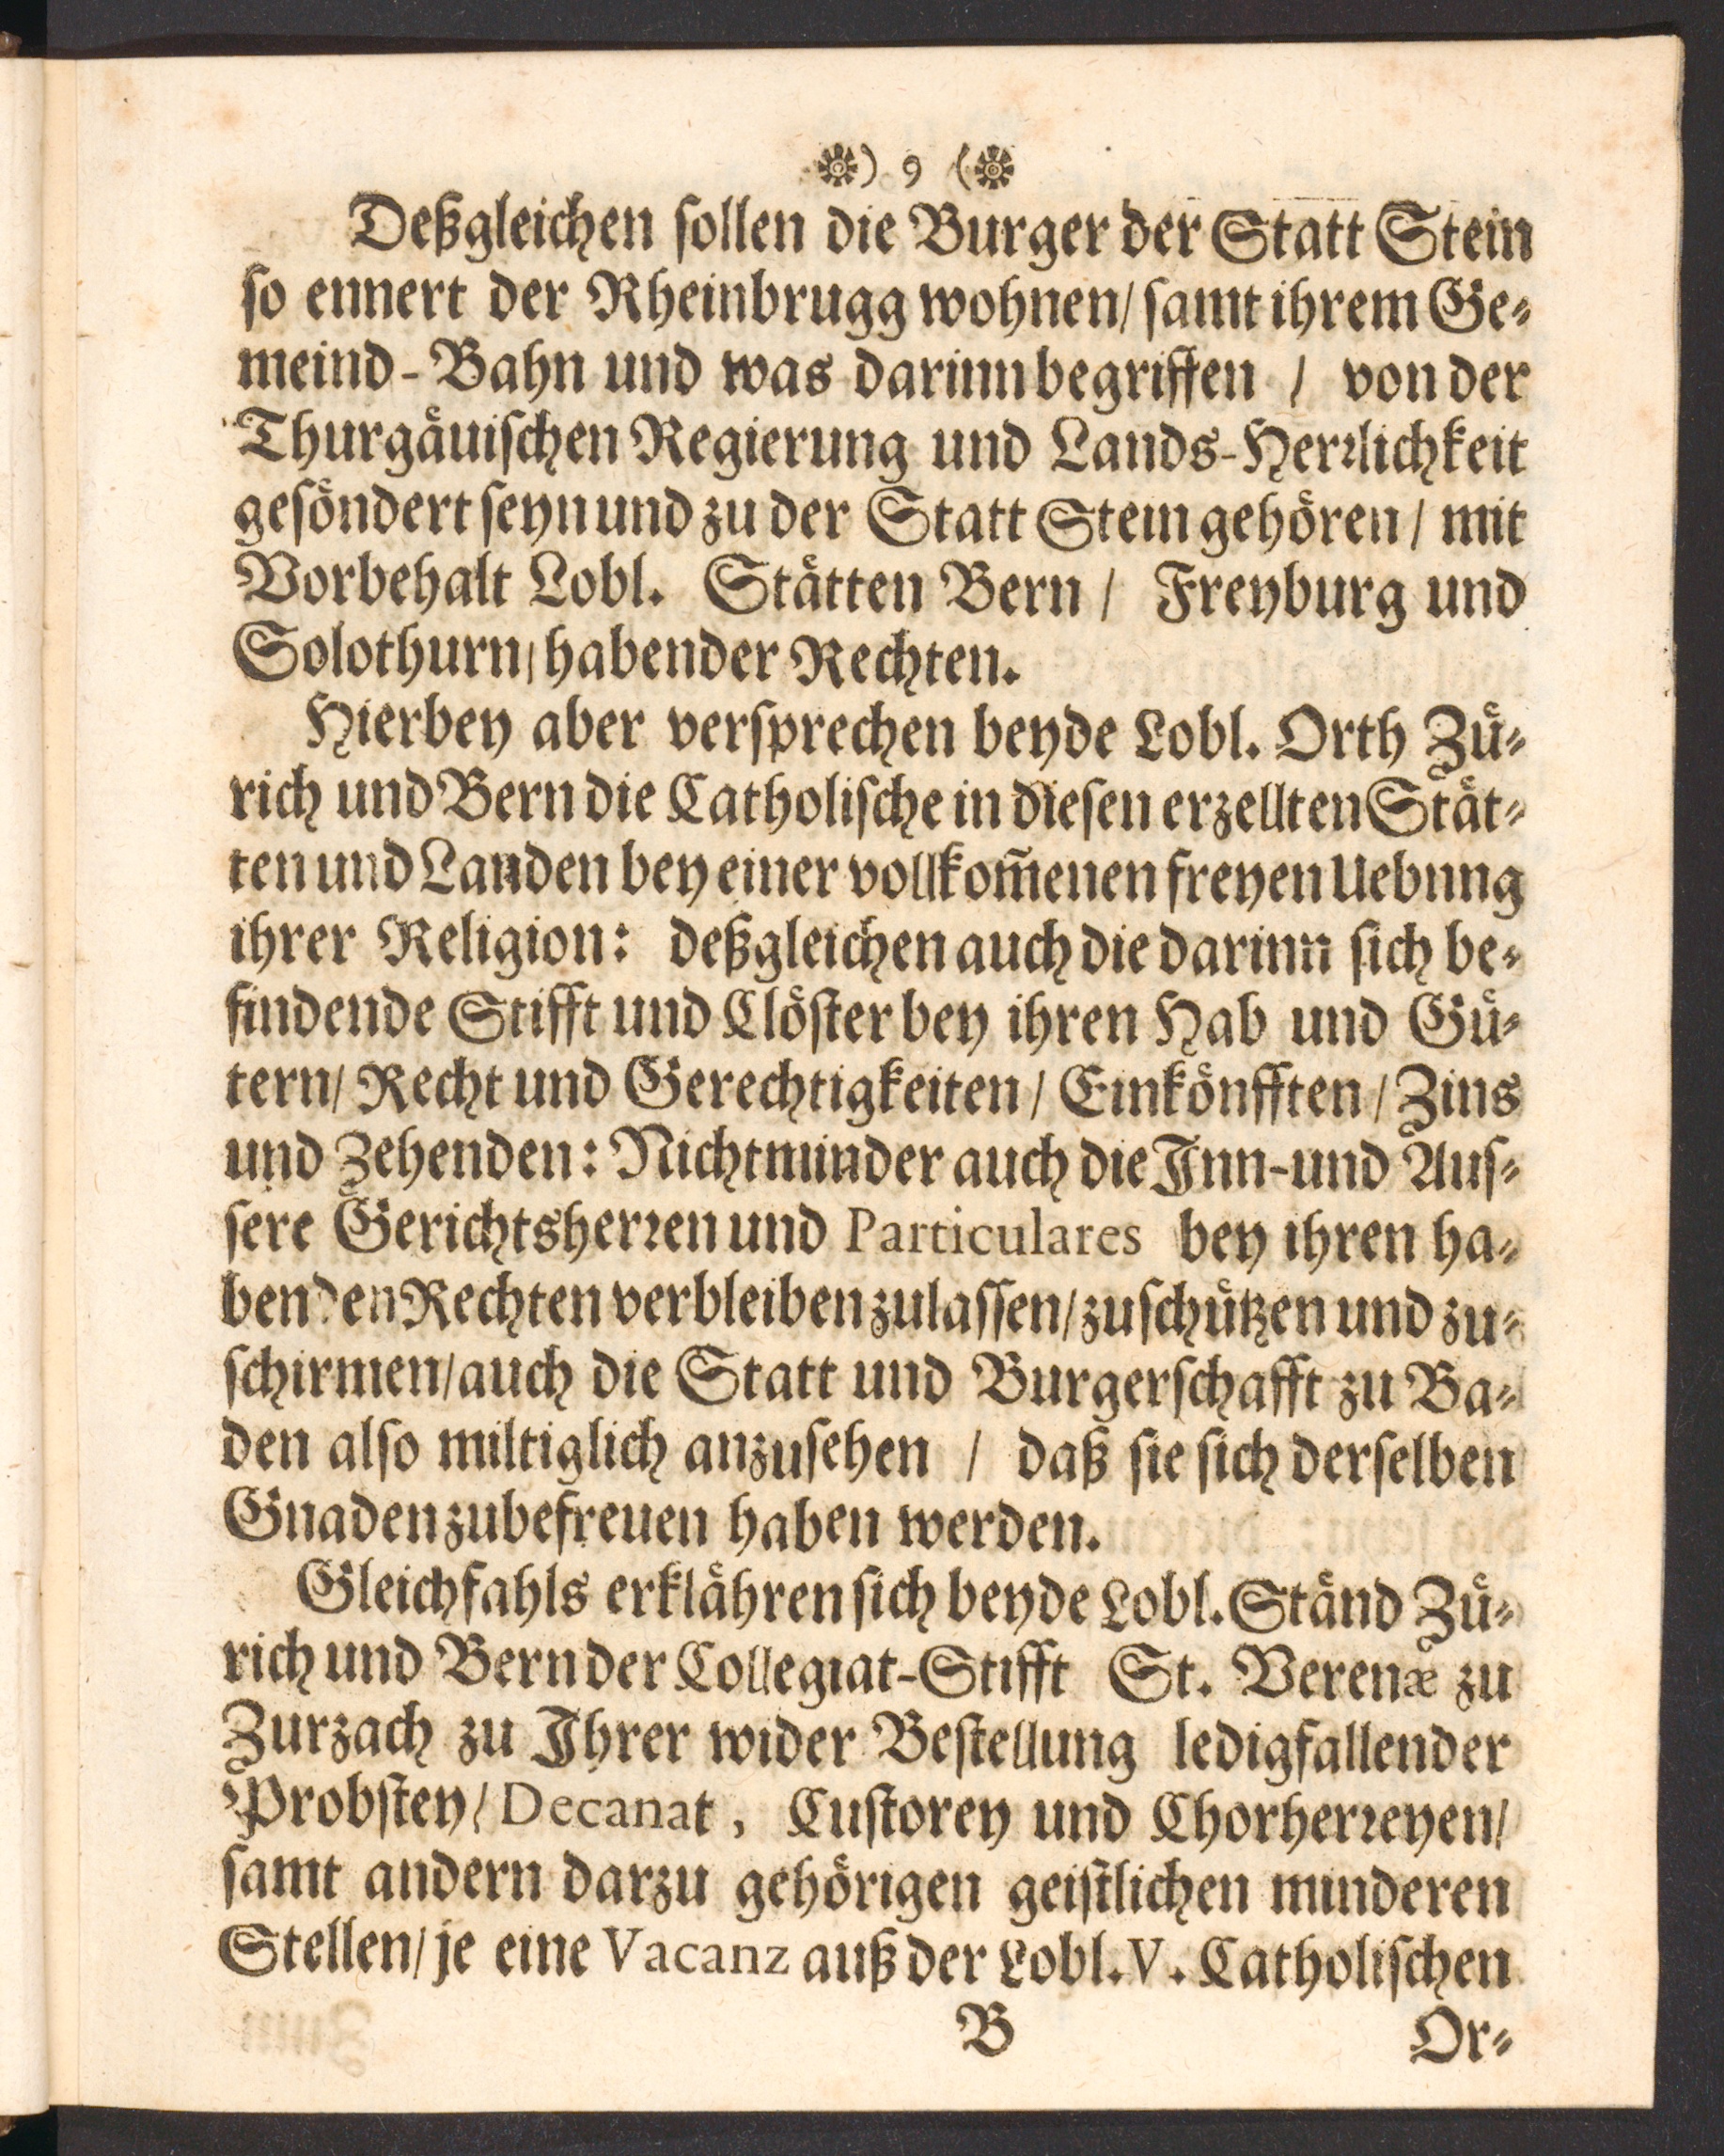 ❁) 9 (❁
Deßgleichen sollen die Burger der Statt Stein
so ennert der Rheinbrugg wohnen/ samt ihrem Ge-
meind-Bahn und was darinn begriffen / von der
Thurgäuischen Regierung und Lands-Herrlichkeit
gesöndert seyn und zu der Statt Stein gehören/ mit
Vorbehalt Lobl. Stätten Bern / Freyburg und
Solothurn/ habender Rechten.
Hierbey aber versprechen beyde Lobl. Orth Zü-
rich und Bern die Catholische in diesen erzellten Stät-
ten und Landen bey einer vollkom̃enen freyen Uebnng
ihrer Religion: deßgleichen auch die darinn sich be-
findende Stifft und Clöster bey ihren Hab und Gü-
tern/ Recht und Gerechtigkeiten/ Einkönfften/ Zins
und Zehenden: Nichtminder auch die Inn-und Aus-
sere Gerichtsherren und Particulares bey ihren ha-
benden Rechten verbleiben zulassen/ zuschützen und zu-
schirmen/ auch die Statt und Burgerschafft zu Ba-
den also miltiglich anzusehen / daß sie sich derselben
Gnaden zubefreuen haben werden.
Gleichfahls erklähren sich beyde Lobl. Ständ Zü-
rich und Bern der Collegiat-Stifft St. Verenæ zu
Zurzach zu Ihrer wider Bestellung ledigfallender
Probstey/ Decanat, Custorey und Chorherreyen/
samt andern darzu gehörigen geistlichen minderen
Stellen/ je eine Vacanz auß der Lobl. V. Catholischen
B Or-